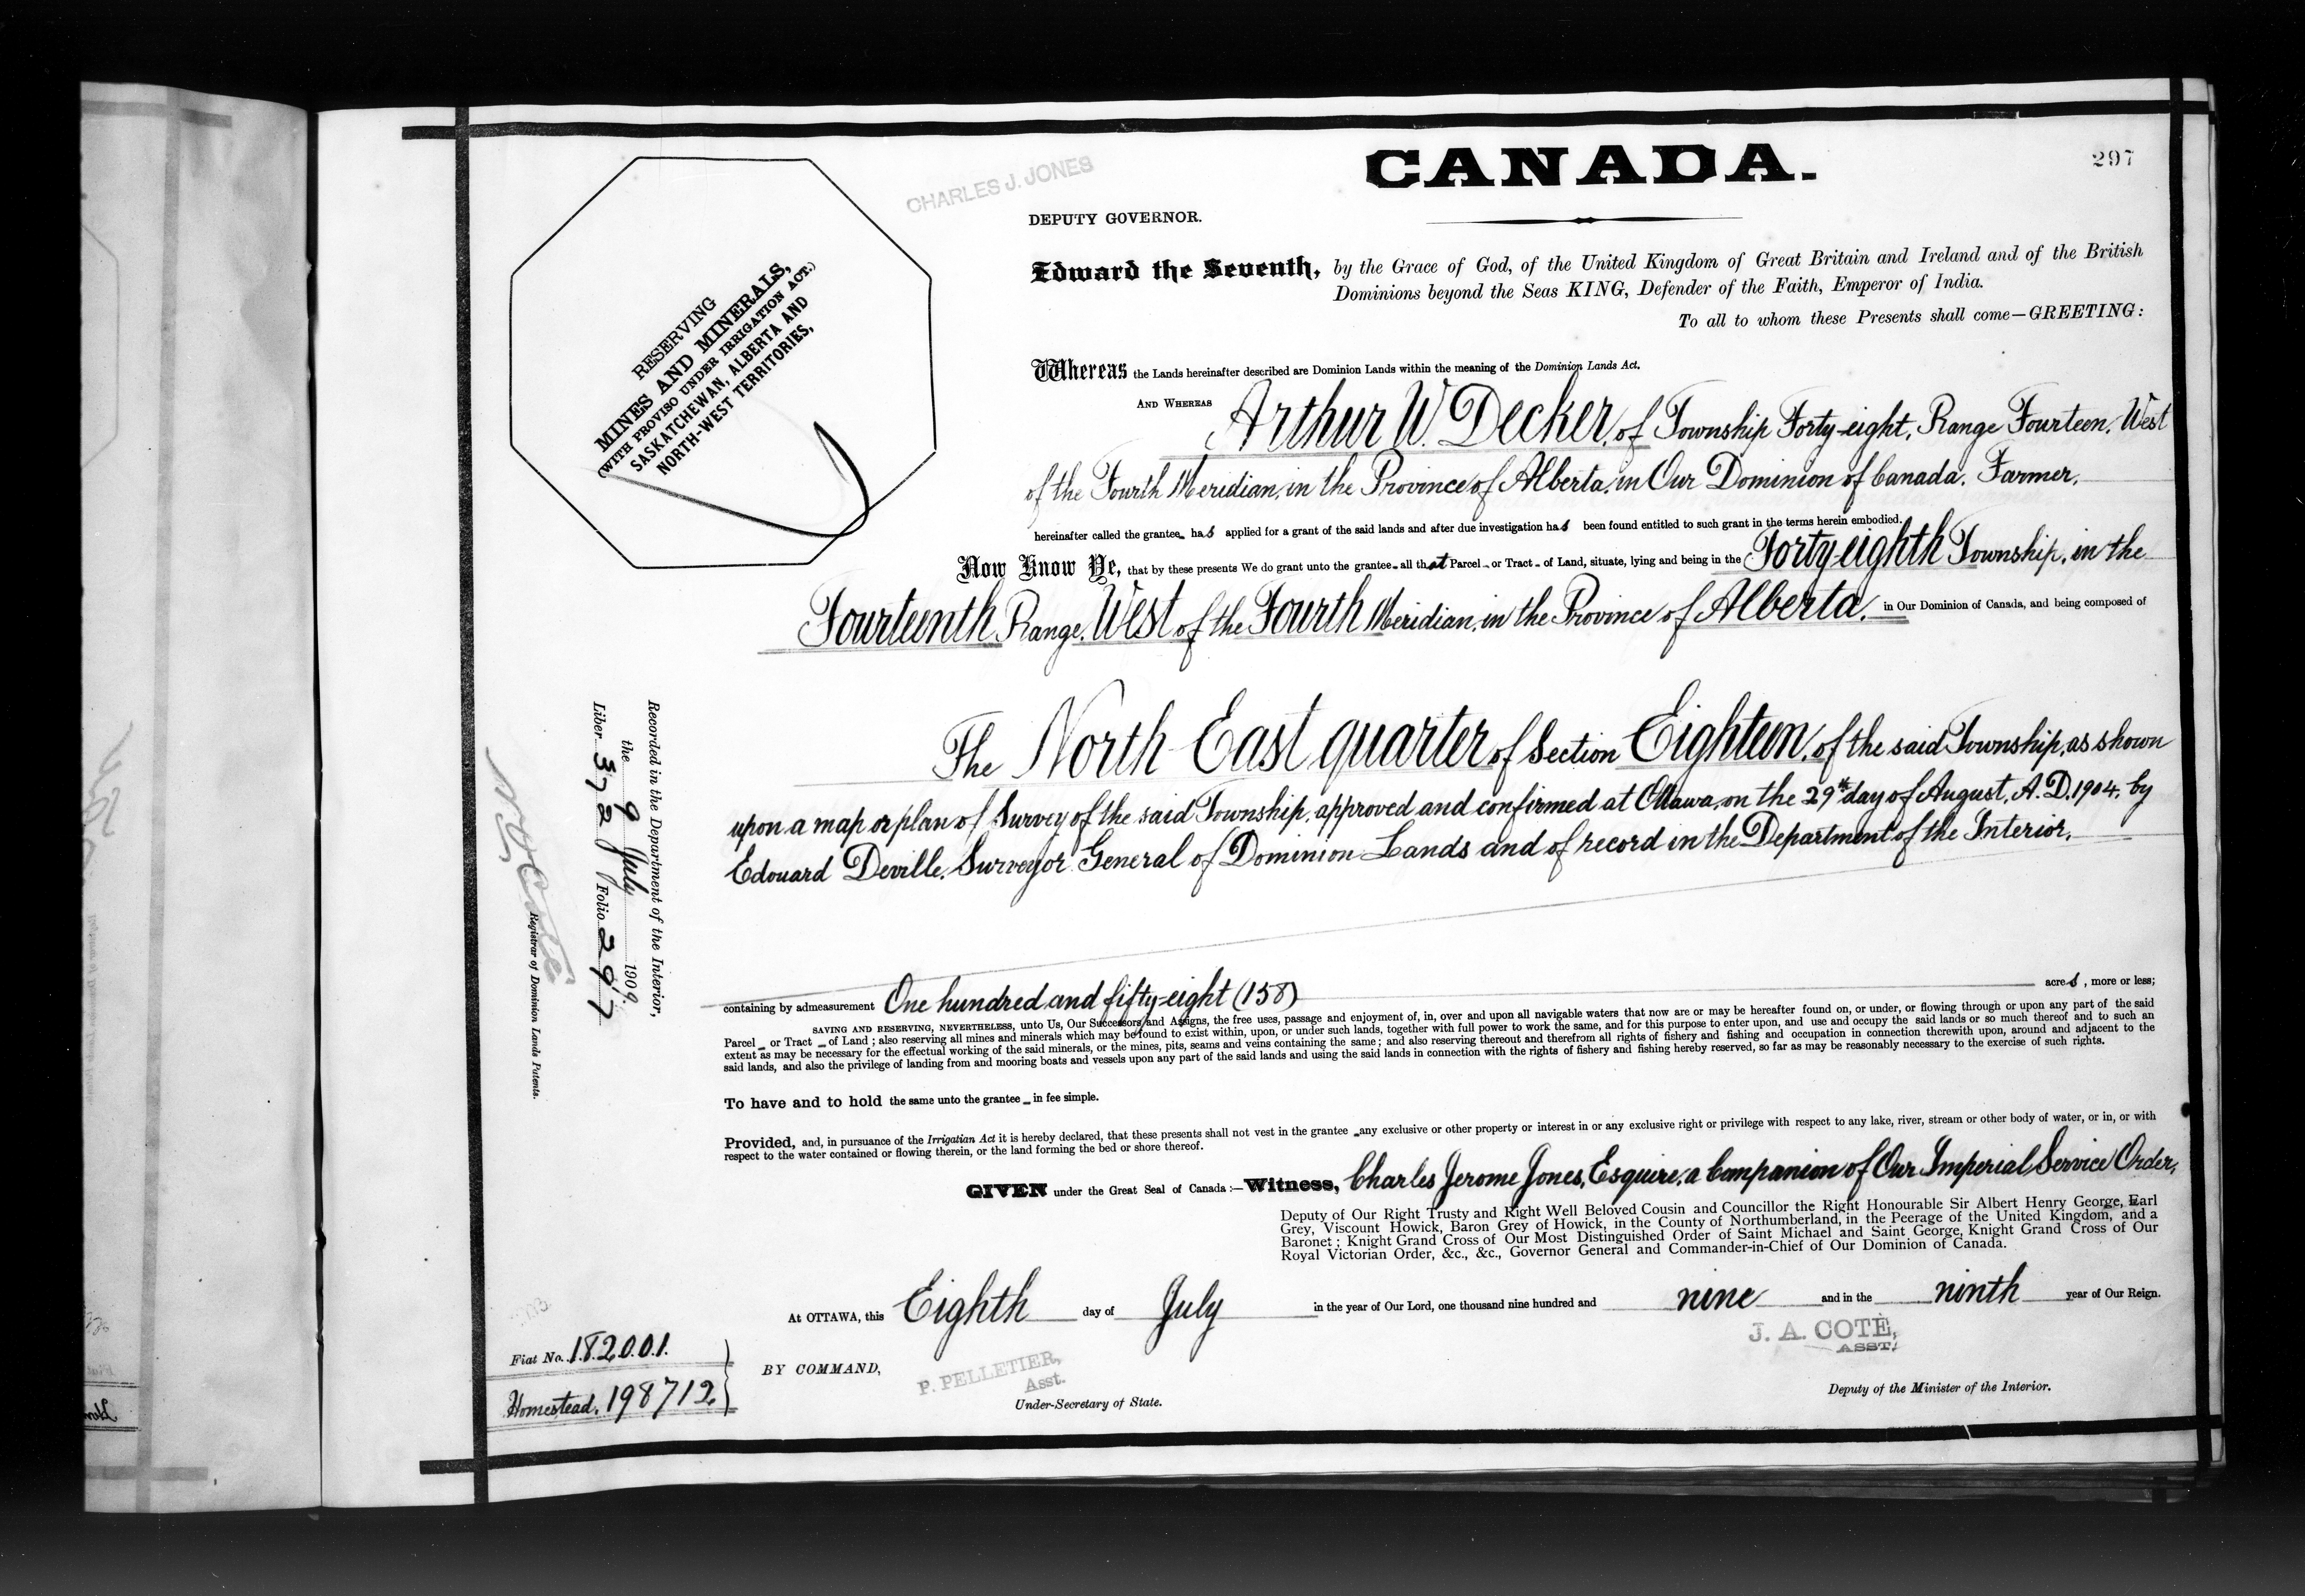 297
CANADA.
CHARLES J. JONES
DEPUTY GOVERNOR.
RESERVING
MINES AND MINERALS,
(WITH PROVISO UNDER IRRIGATION ACT.)
SASKATCHEWAN, ALBERTA AND
NORTH-WEST TERRITORIES,
Edward the Seventh, by the Grace of God, of the United Kingdom of Great Britain and Ireland and of the British
Dominions beyond the Seas KING, Defender of the Faith, Emperor of India.
To all to whom these Presents shall come—GREETING:
Whereas the Lands hereinafter described are Dominion Lands within the meaning of the Dominion Lands Act.
AND WHEREAS Arthur W. Decker, of Township Forty-eight, Range Fourteen, West
of the Fourth Meridian, in the Province of Alberta, in Our Dominion of Canada, Farmer,
hereinafter called the grantee has applied for a grant of the said lands and after due investigation has been found entitled to such grant in the terms herein embodied.
Now Know Ye, that by these presents We do grant unto the grantee all that Parcel or Tract of Land, situate, lying and being in the Forty-eighth Township, in the
Fourteenth Range, West of the Fourth Meridian, in the Province of Alberta, in Our Dominion of Canada, and being composed of
The North East quarter of Section Eighteen, of the said Township, as shown
upon a map or plan of Survey of the said Township, approved and confirmed at Ottawa, on the 29th day of August, A.D. 1904, by
Edouard Deville, Surveyor General of Dominion Lands and of record in the Department of the Interior,
containing by admeasurement One hundred and fifty-eight (158) acres, more or less;
SAVING AND RESERVING, NEVERTHELESS, unto Us, Our Successors and Assigns, the free uses, passage and enjoyment of, in, over and upon all navigable waters that now are or may be hereafter found on, or under, or flowing through or upon any part of the said
Parcel or Tract of Land; also reserving all mines and minerals which may be found to exist within, upon, or under such lands, together with full power to work the same, and for this purpose to enter upon, and use and occupy the said lands or so much thereof and to such an
extent as may be necessary for the effectual working of the said minerals, or the mines, pits, seams and veins containing the same; and also reserving thereout and therefrom all rights of fishery and fishing and occupation in connection therewith upon, around and adjacent to the
said lands, and also the privilege of landing from and mooring boats and vessels upon any part of the said lands and using the said lands in connection with the rights of fishery and fishing hereby reserved, so far as may be reasonably necessary to the exercise of such rights.
To have and to hold the same unto the grantee in fee simple.
Provided, and, in pursuance of the Irrigatian Act it is hereby declared, that these presents shall not vest in the grantee any exclusive or other property or interest in or any exclusive right or privilege with respect to any lake, river, stream or other body of water, or in, or with
respect to the water contained or flowing therein, or the land forming the bed or shore thereof.
GIVEN under the Great Seal of Canada:—Witness, Charles Jerome Jones, Esquire, a Companion of Our Imperial Service Order,
Deputy of Our Right Trusty and Right Well Beloved Cousin and Councillor the Right Honourable Sir Albert Henry George, Earl
Grey, Viscount Howick, Baron Grey of Howick, in the County of Northumberland, in the Peerage of the United Kingdom, and a
Baronet; Knight Grand Cross of Our Most Distinguished Order of Saint Michael and Saint George, Knight Grand Cross of Our
Royal Victorian Order, &c., &c., Governor General and Commander-in-Chief of Our Dominion of Canada.
At OTTAWA, this Eighth day of July in the year of Our Lord, one thousand nine hundred and nine and in the ninth year of Our Reign.
J. A. COTE,
ASST.
BY COMMAND,
P. PELLETIER,
Asst.
Under-Secretary of State.
Deputy of the Minister of the Interior.
Fiat No. 182001.
Homestead. 198712
Recorded in the Department of the Interior,
the 9 July 1909.
Liber 372 Folio 297
Registrar of Dominion Lands Patents.